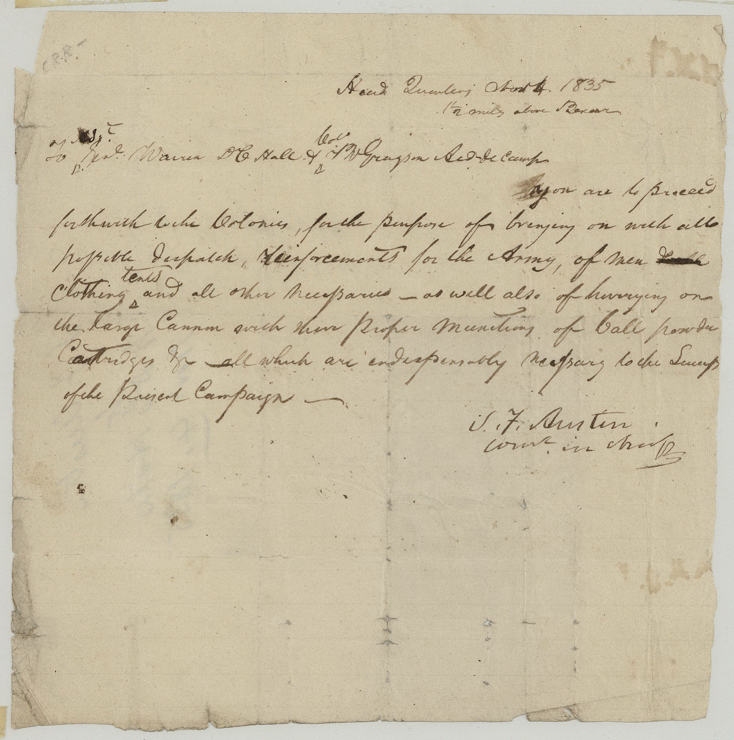 C.R.R.
Head Quarters Nov 4. 1835
1½ miles above Bexar
To Asst
Genl. Warren D C Hall & Col. P W Grayson Aid de camp
you are to proceed
forthwith to the Colonies, for the purpose of bringing on with all
possible despatch, Reinforcements for the Army, of men
Clothing tents and all other necessaries — as well also of hurrying on
the large Cannon with their Proper Munitions of ball powder
Cartridges &c — all which are indespensably necessary to the Success
of the Present Campaign —
S. F. Austin
in chief